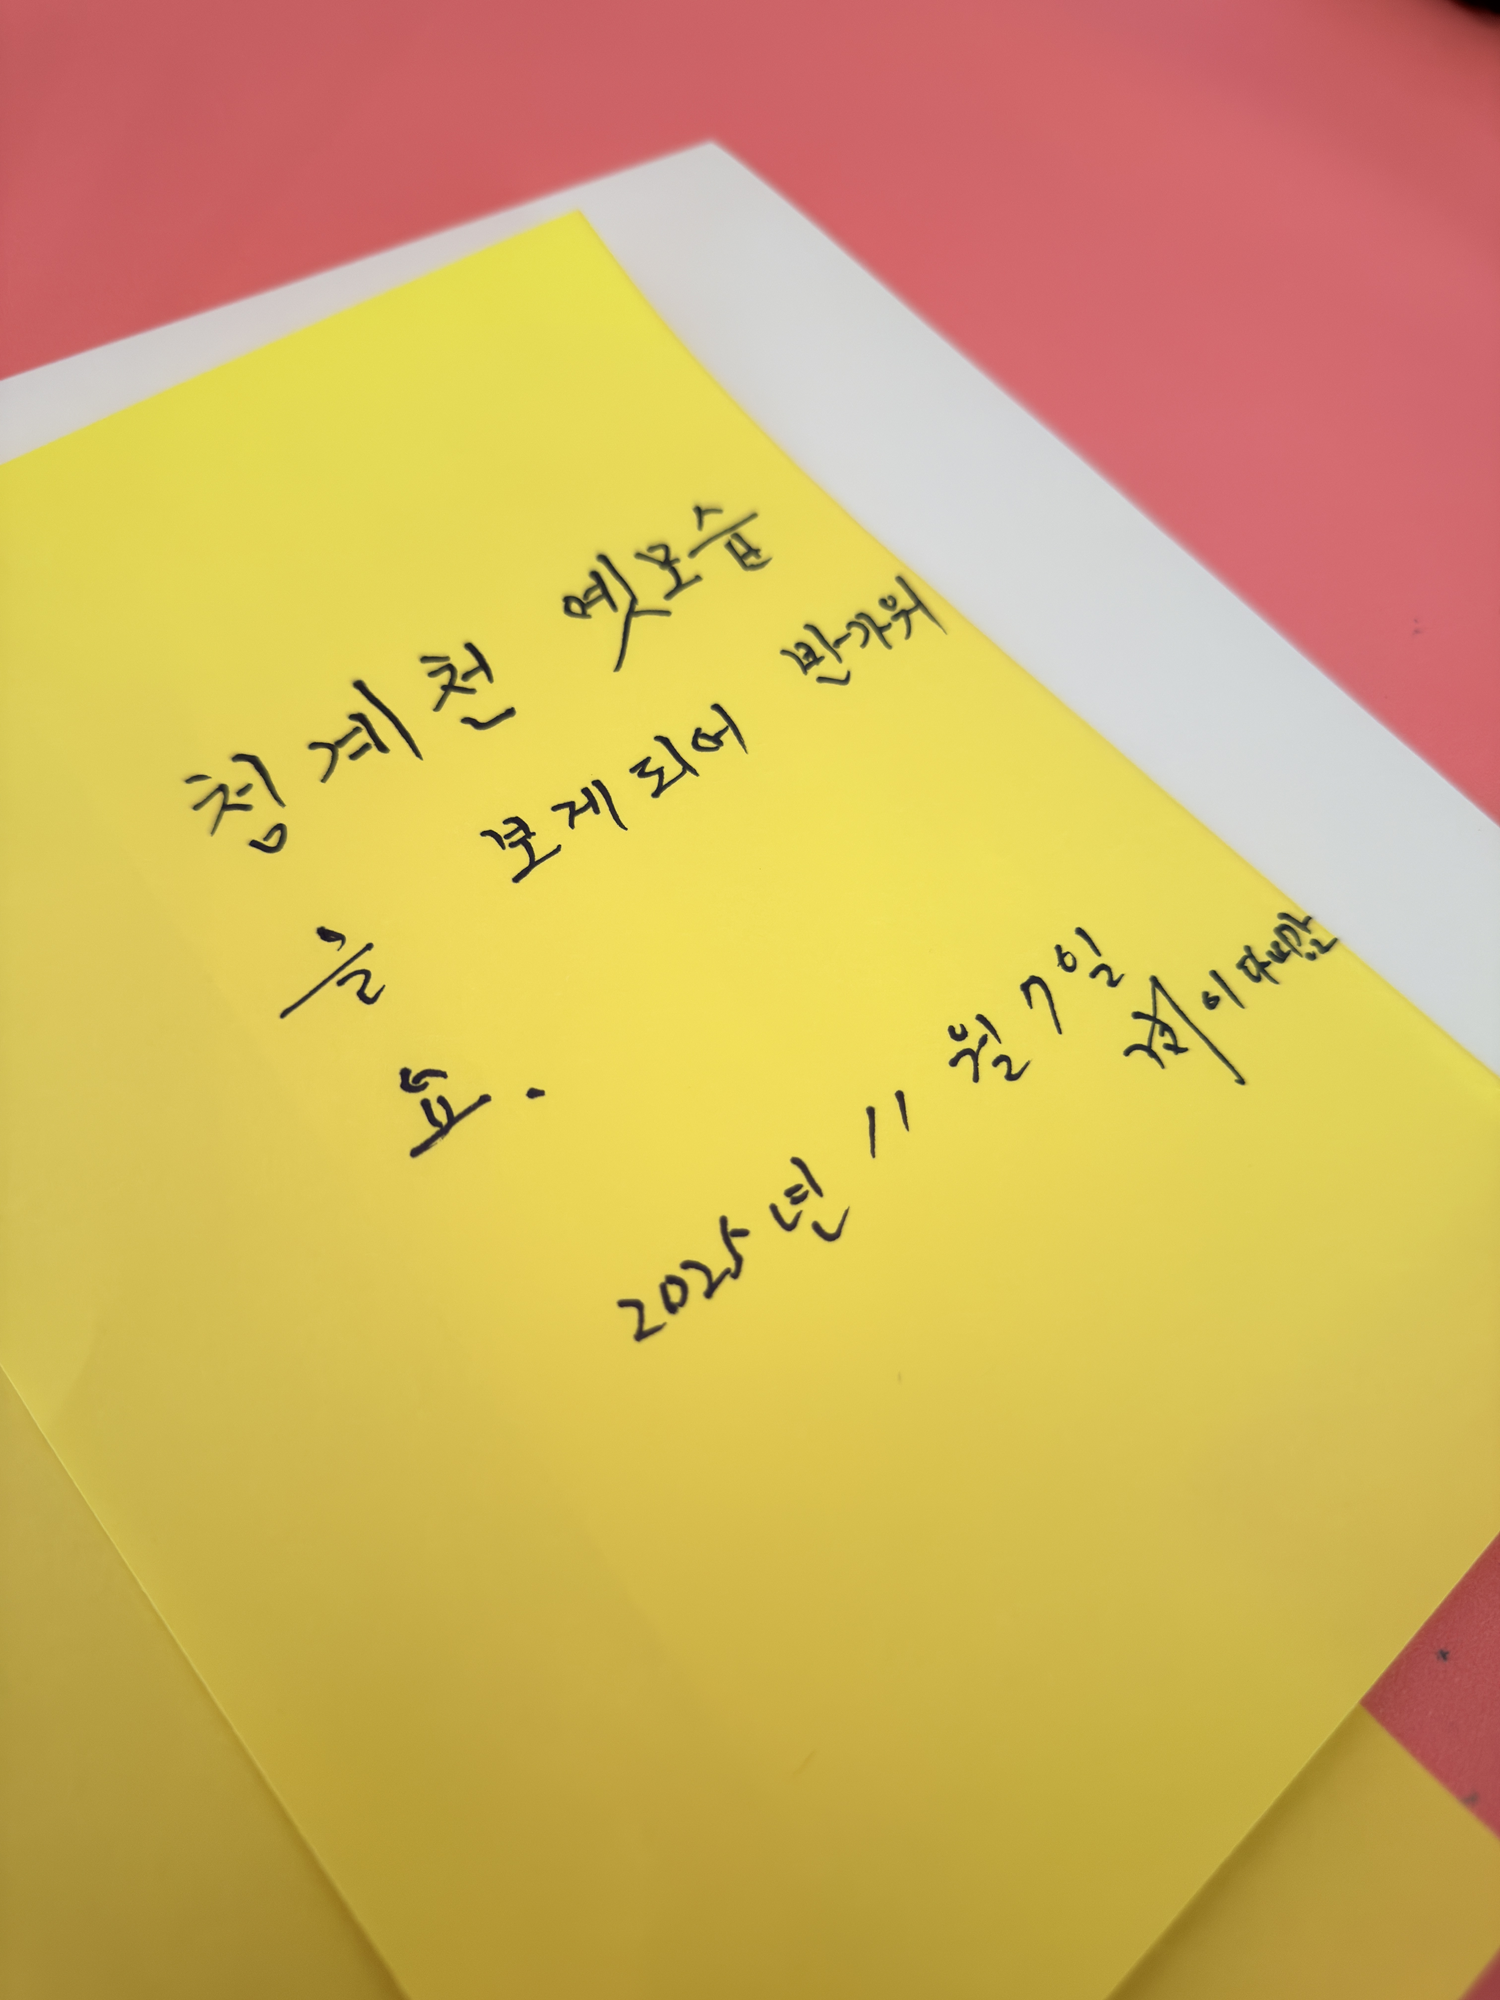 청계천 옛모습
을 보게되어 반가워
요.
2025년 11월 7일
이